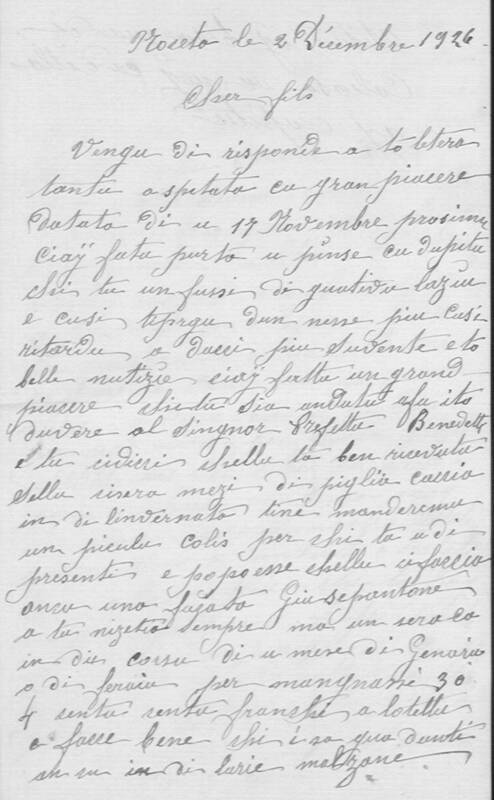 Roseto le 2 Décembre 1926
Cher fils
Vengu di risponde a to letera
tantu aspetata cu gran piacere
datata di u 17 Novembre prosimu
ciaÿ fatu portà u pinse cu dupitu
chi tu un fussi di gattivu
e cusi ti pregu d'un nesse piu cusi
ritardu a dacci piu suvente e to
belle nutizie ciaÿ fattu un grand
piacere chi tu sia andatu a fa ito
duvere al Singnor Prefettu Benedetti
e tu cidicci chellu ta ben ricevutu
sellu sisera mezi di piglia caccia
in di l'invernatu tine manderemu
un piculu colis per chi tu u di
presenti e popo esse chellu ci faccia
anzu una
a tu sempre ma un sera ca
in du corsu di u mese di Genaiu
o di feraiu per mangnani 3 o
4 centu centu franchi a lotellu
e facce bene chi i so qua
an su in di larie